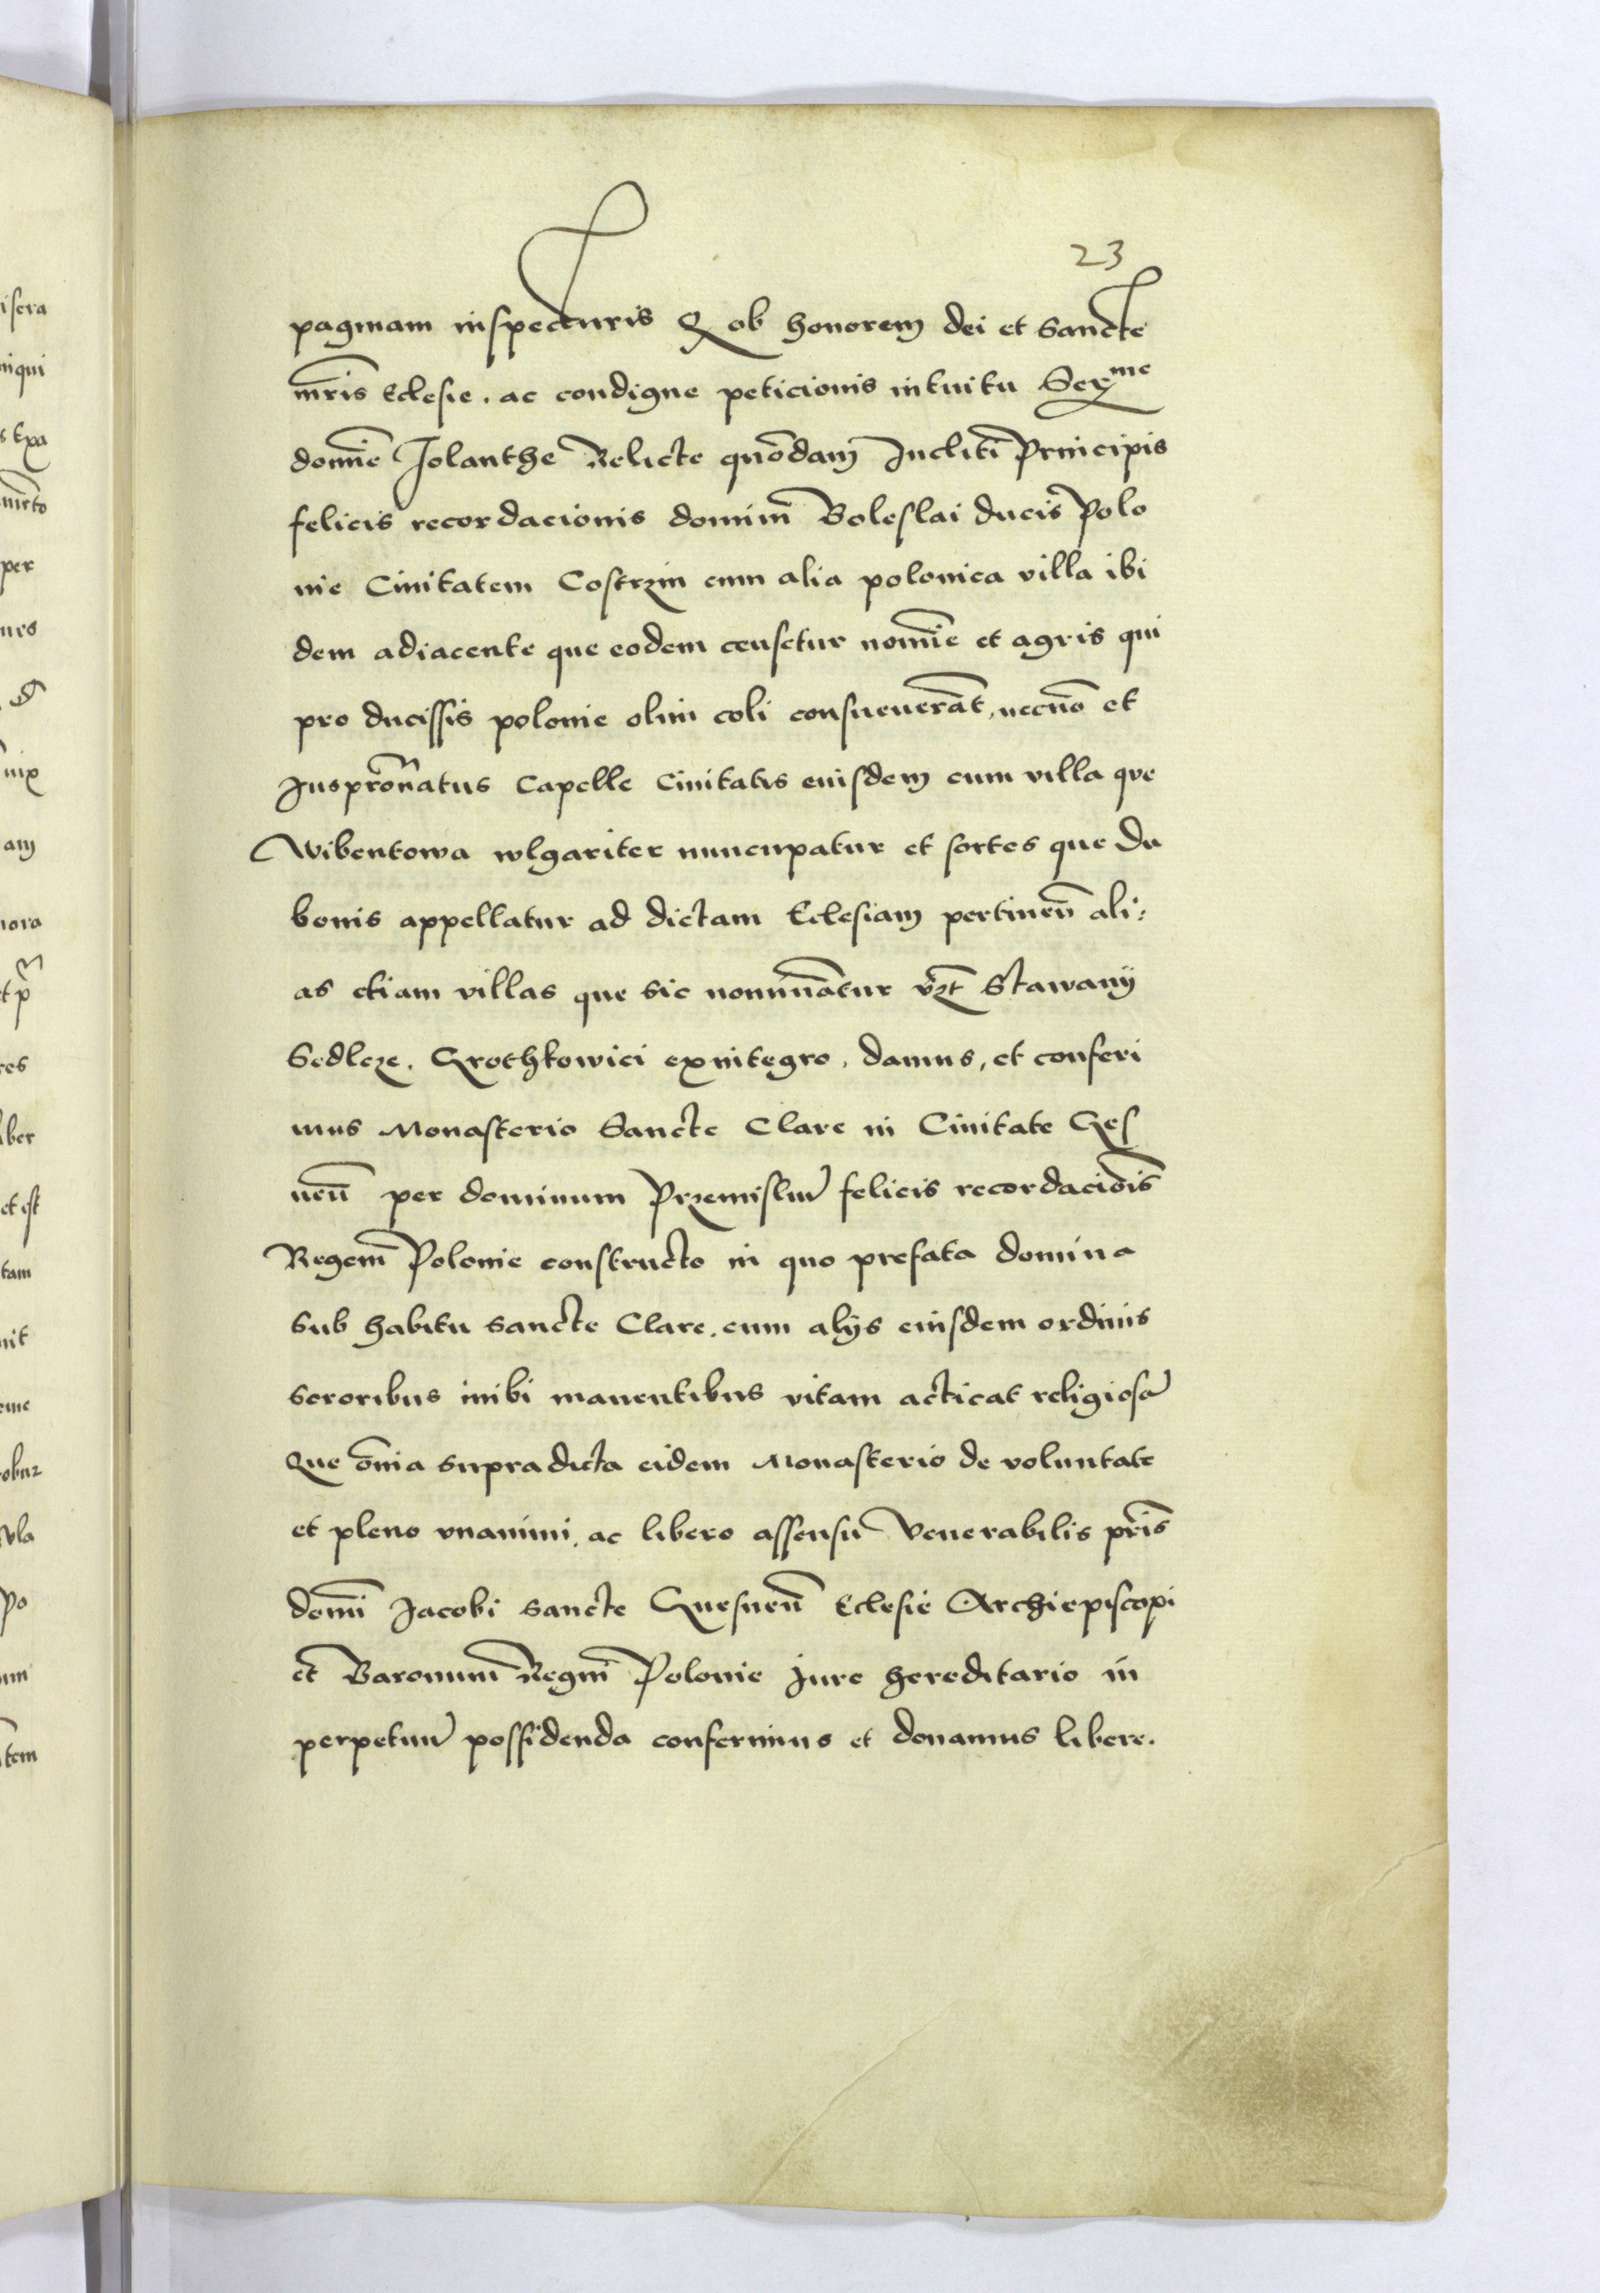 23
paginam inspecturis Q ob honorem dei et Sancte
mr̃is Eclesie. ac condigne peticionis intuitu Sex^me
domñe Iolanthe Relicte quõdam Incliti Principis
felicis recordacionis domini Boleslai ducis Polo
nie Ciuitatem Costrzin cum alia polonica villa ibi
dem adiacente que eodem censetur nomĩe et agris qui
pro ducissis polonie olim coli consueuerãt, necnõ et
Juspatroñatus Capelle Ciuitatis eiusdem cum villa que
Wibentowa wlgariter nuncupatur et sortes que Du
bonis appellatur ad dictam Eclesiam pertineñ ali:
as etiam villas que sic nominãtur vzt Stawany
Sedlcze. Grothkowici exintegro, damus, et conferi
mus Monasterio Sancte Clare in Ciuitate Ges
neñ per dominum Przemislũ felicis recordaciõis
Regem Polonie constructo in quo prefata domina
sub habitu sancte Clare. cum alijs eiusdem ordinis
sororibus inibi manentibus vitam acticat religiosã
Que õnia supradicta eidem Monasterio de voluntate
et pleno vnanimi, ac libero assensu Venerabilis pr̃is
domĩ Jacobi sancte Gnesneñ Eclesie Archiepiscopi
et Baronum Regni Polonie Jure hereditario in
perpetuũ possidenda conferimus et donamus libere.